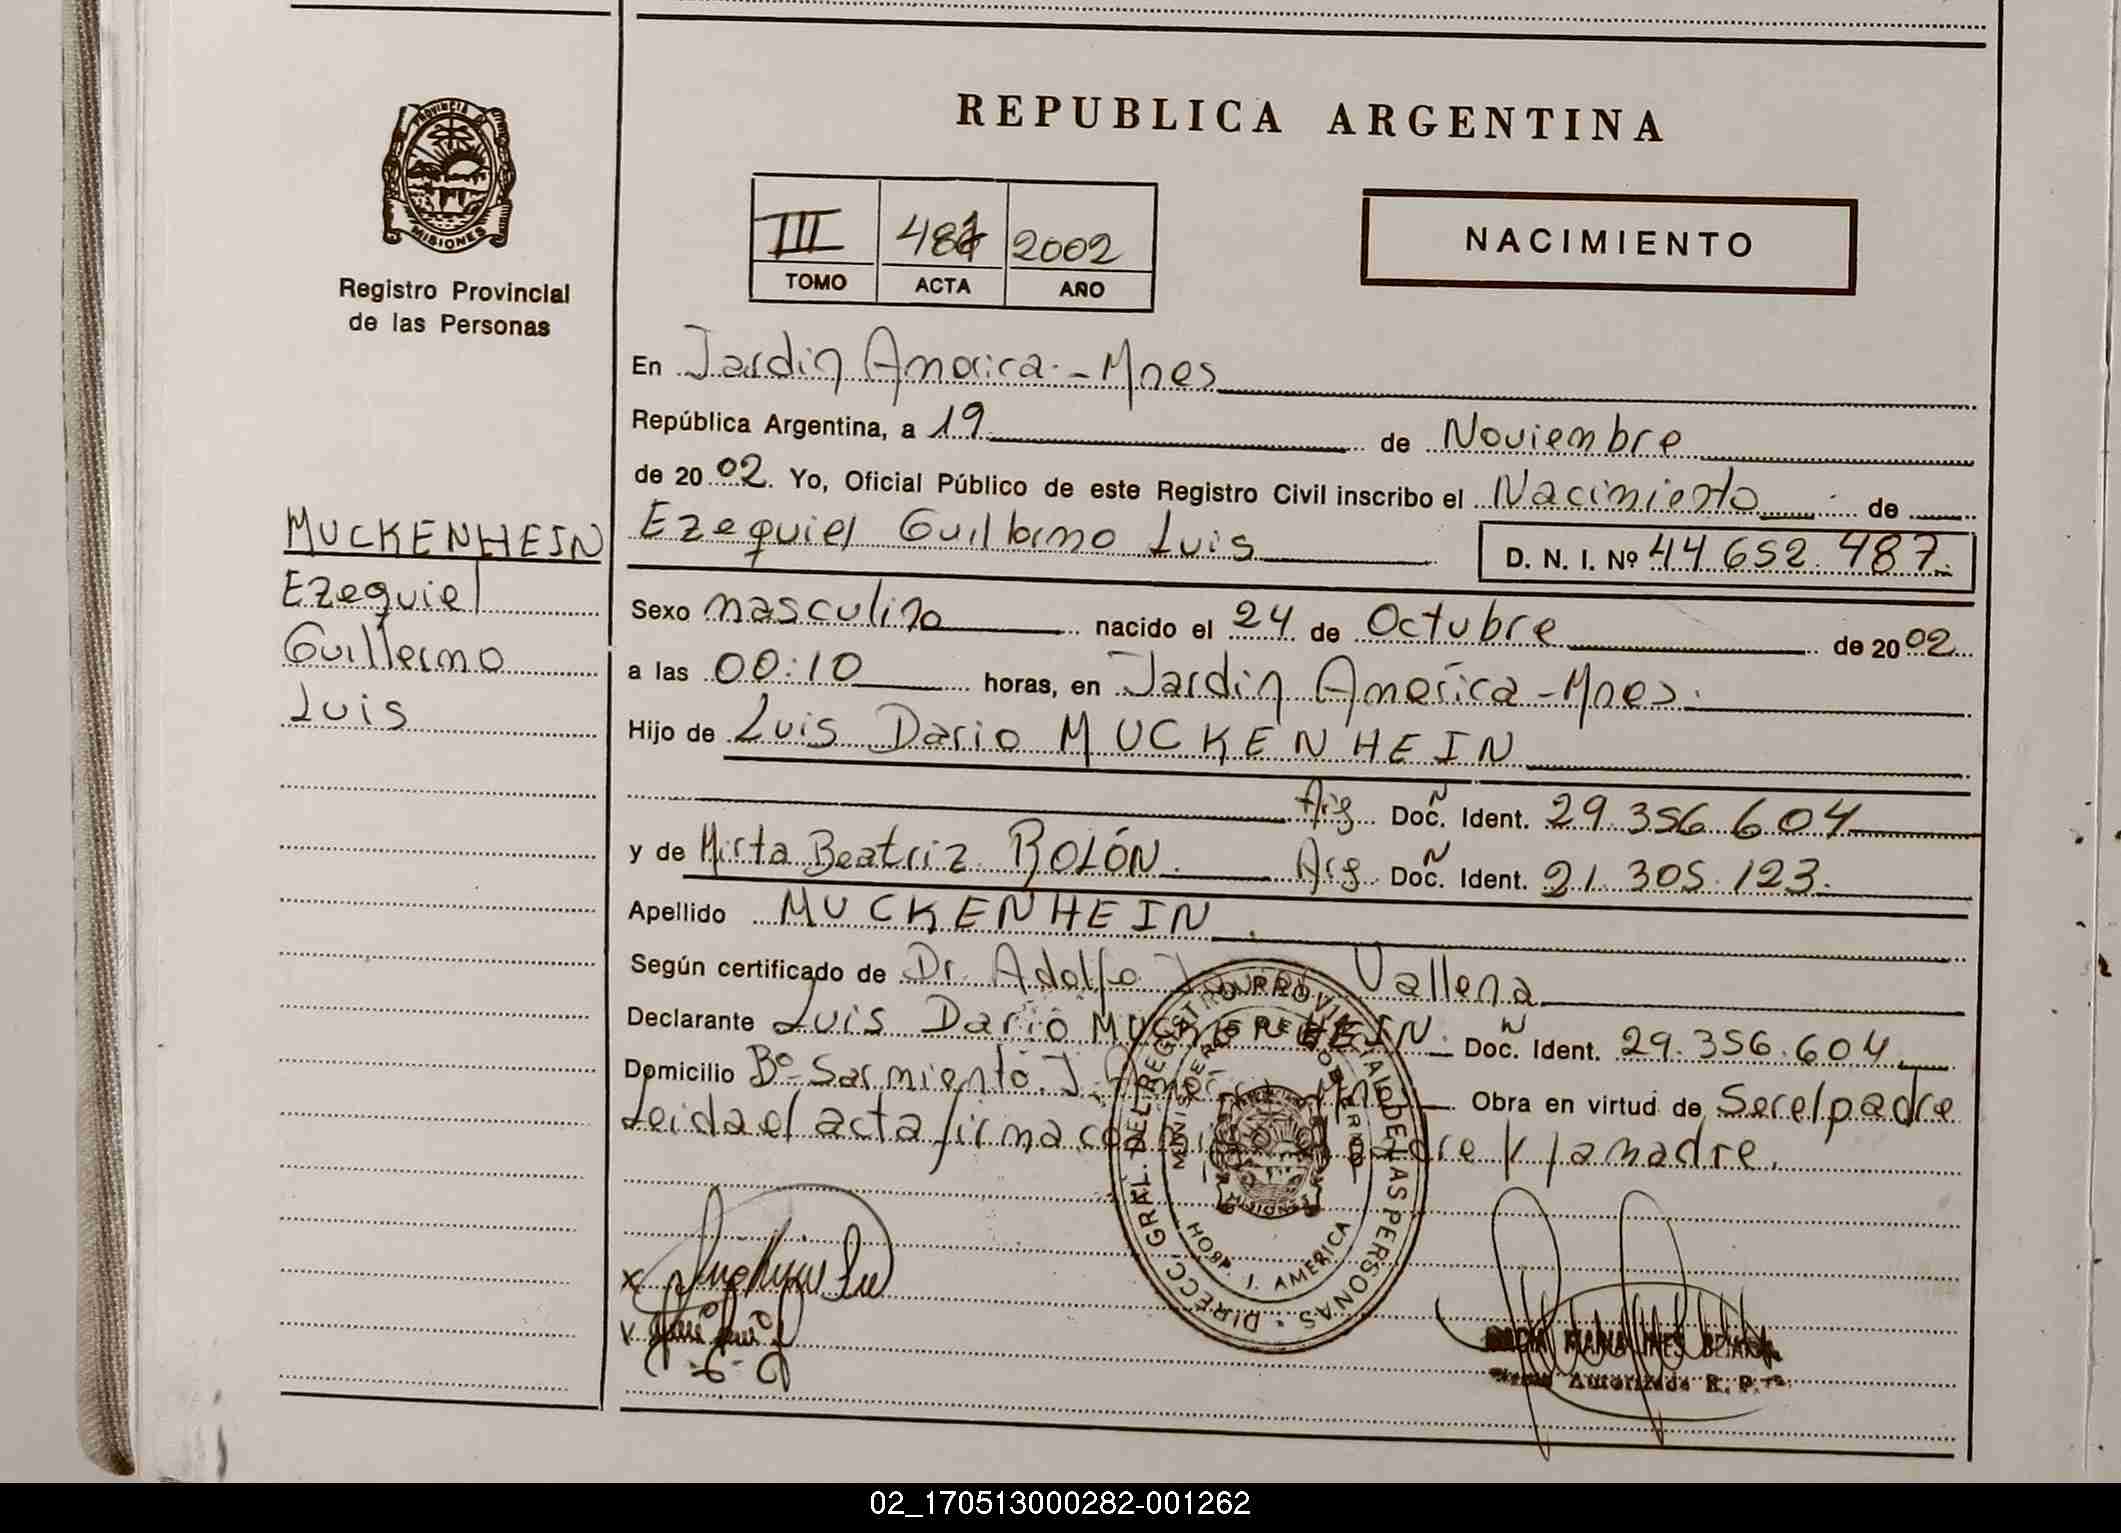 REPUBLICA ARGENTINA
PROVINCIA DE
MISIONES
Registro Provincial
de las Personas
III 2002
TOMO ACTA AÑO
NACIMIENTO
En Jardin America - Mnes
República Argentina, a 19 de Noviembre
de 2002. Yo, Oficial Público de este Registro Civil inscribo el Nacimiento de
Ezequiel Guillermo Luis D. N. I. Nº 44.652.487.
Sexo masculino nacido el 24 de Octubre de 2002
a las 00:10 horas, en Jardin America - Mnes.
Hijo de Luis Dario MUCKENHEIN
Arg. Doc. N Ident. 29.356.604
y de Mirta Beatriz ROLÓN. Arg. Doc. N Ident. 21.305.123.
Apellido MUCKENHEIN.
Según certificado de Dr. Adolfo Vallena
Declarante Luis Dario MUCKENHEIN. Doc. N Ident. 29.356.604
Domicilio Bº Sarmiento. J. America Mnes Obra en virtud de Ser el padre
Leida el acta firma el padre y la madre.
MUCKENHEIN
Ezequiel
Guillermo
Luis
DIRECC. GRAL. DEL REGISTRO PROVINCIAL DE LAS PERSONAS
MINISTERIO DE GOBIERNO
HOSP. J. AMERICA
MARIA INES
Autorizada R. P.
02_170513000282-001262